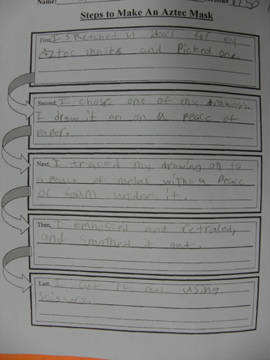 Name:
Steps to Make An Aztec Mask
First, I sketched 4 for my
Aztec and Picked one.
Second, I chose one of my
I drew it on on a Peace of
Paper.
Next, I traced my drawing on to
a Peace of metal with a Peace
of foam under it.
Then, I embossed and retraced,
and smothed it out.
Last, I cut it out using
scissors.